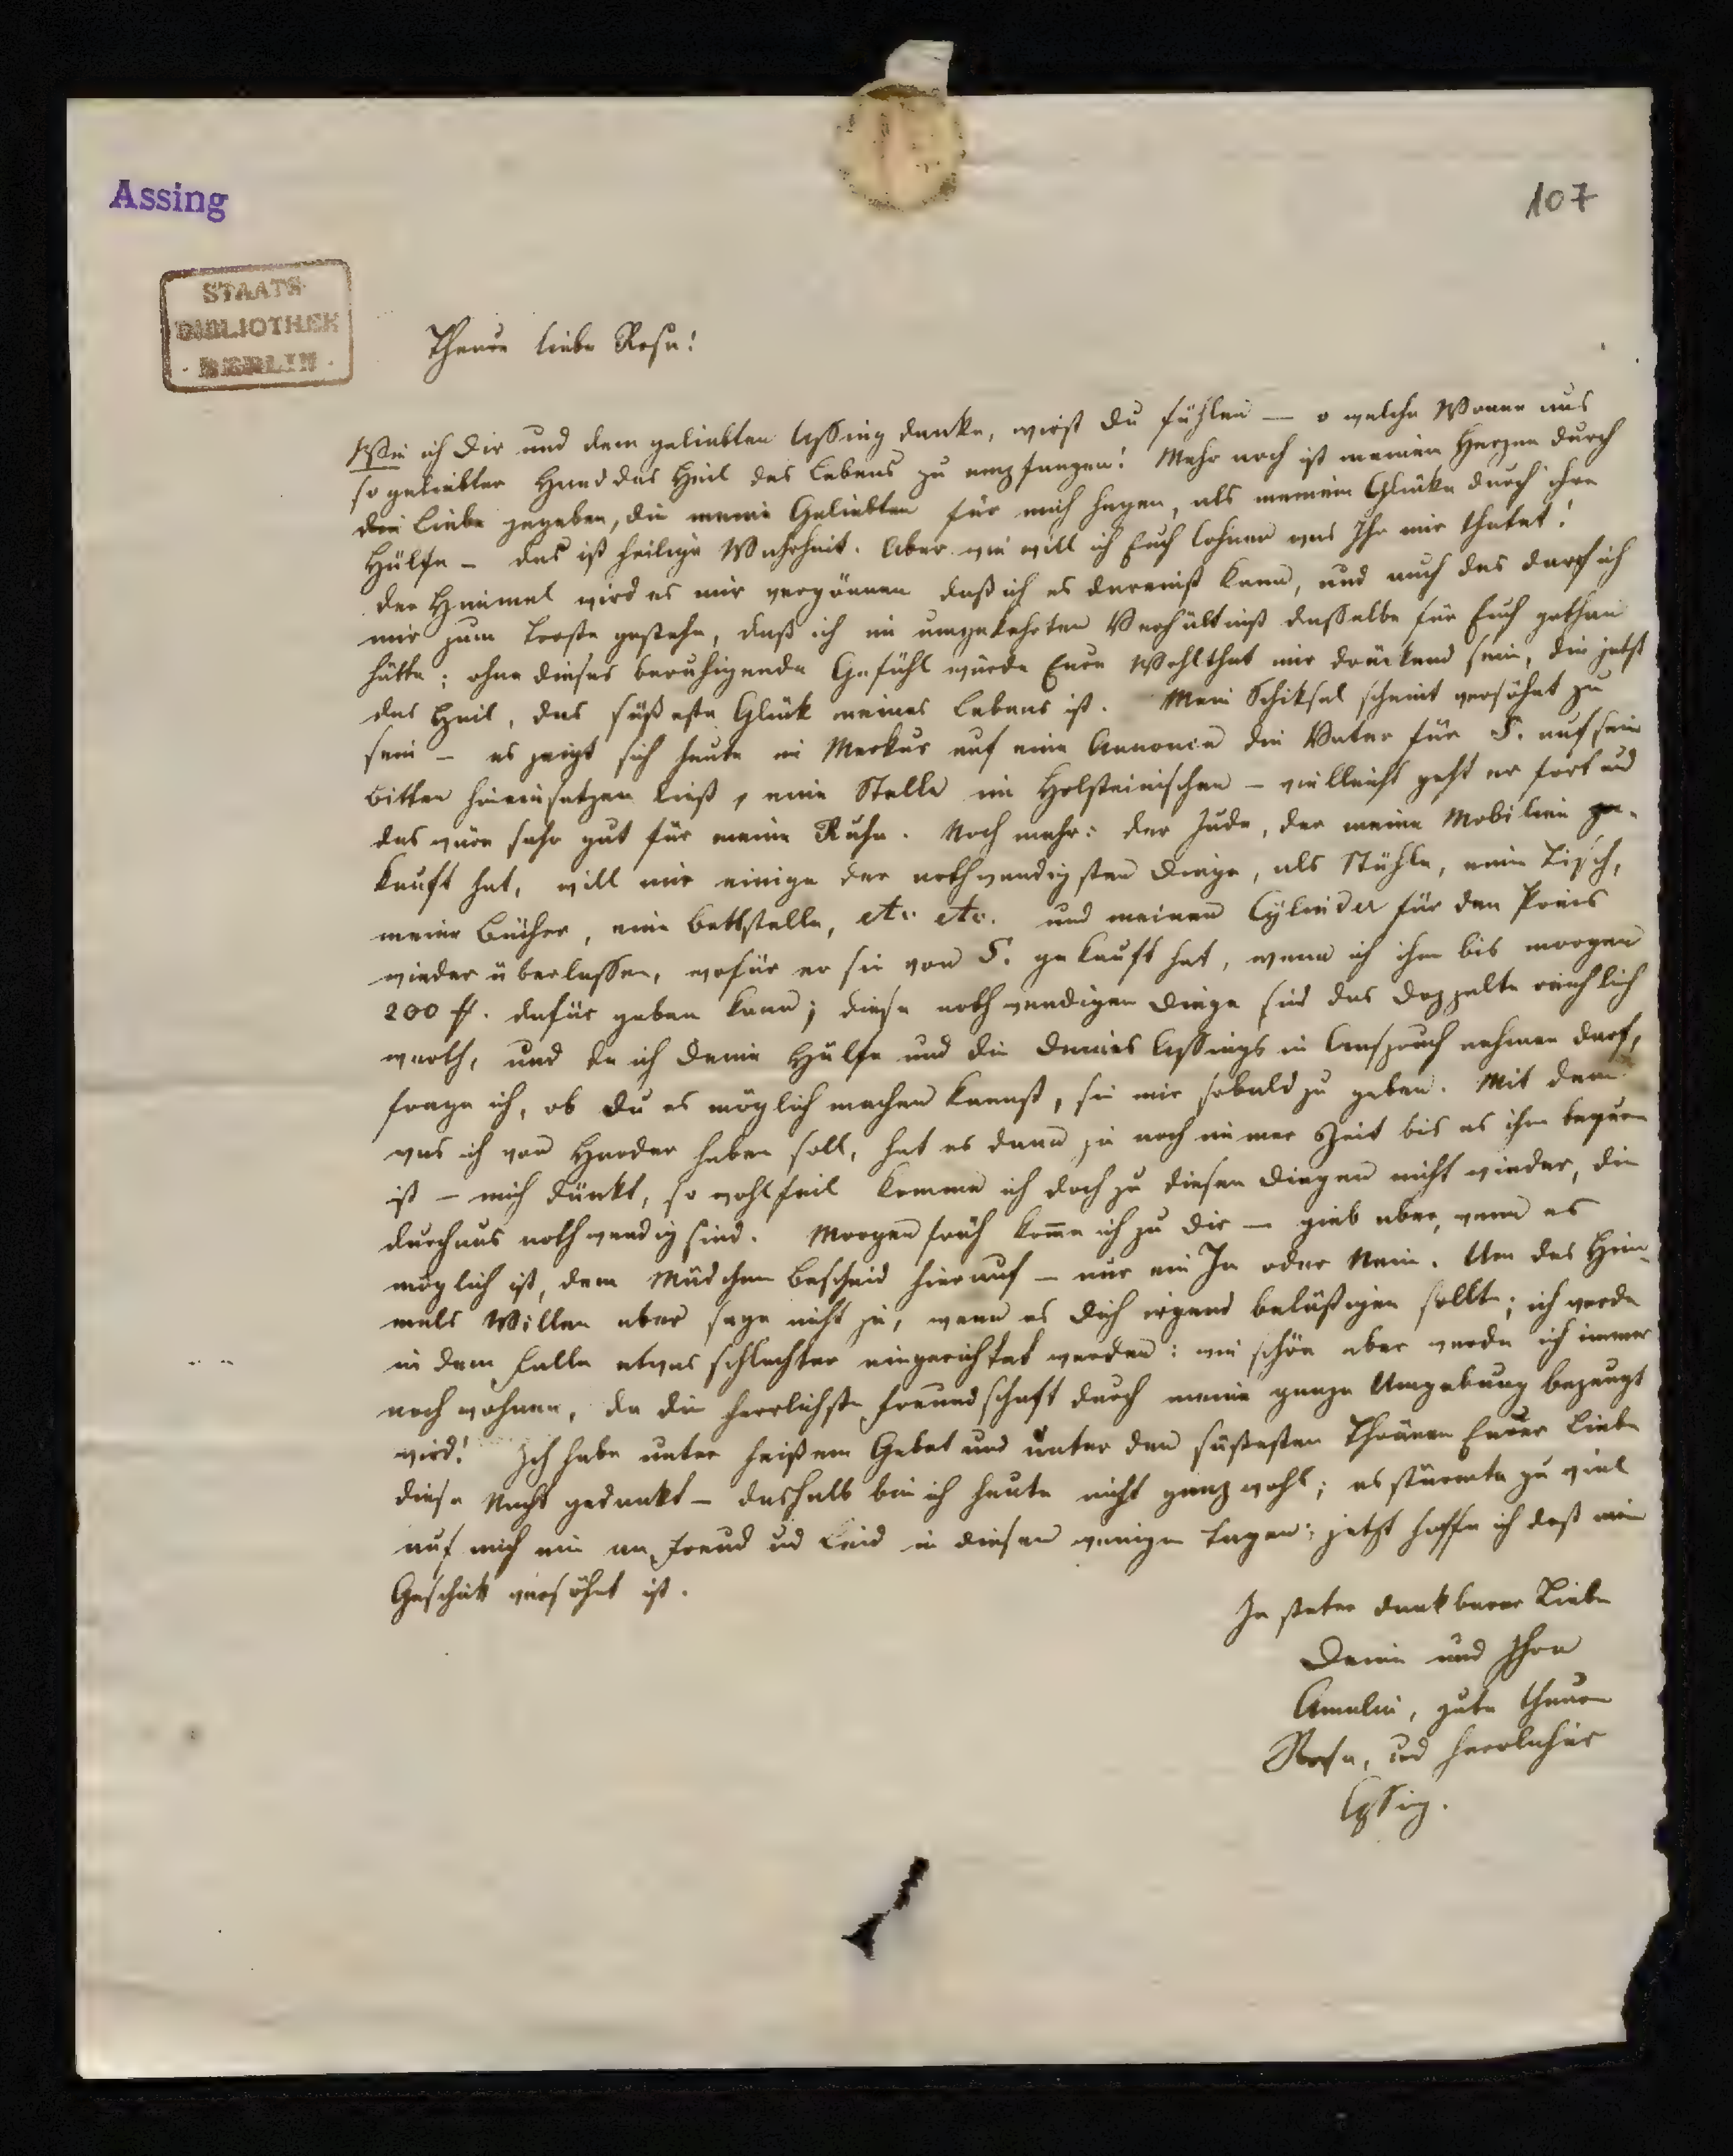 Assing
107
STAATS-
BIBLIOTHEK
· BERLIN ·
Theure liebe Rosa!
Wie ich Dir und dem geliebten Assing danke, wirst Du fühlen — o welche Wonne aus
so geliebter Hand das Heil des Lebens zu empfangen! Mehr noch ist meinem Herzen durch
die Liebe gegeben, die meine Geliebten für mich hegen, als meinem Glücke durch ihre
Hülfe – das ist heilige Wahrheit. Aber wie will ich Euch lohnen was Ihr mir thatet!
der Himmel wird es mir vergönnen daß ich es dereinst kann, und auch das darf ich
mir zum Troste gestehn, daß ich im umgekehrten Verhältniß dasselbe für Euch gethan
hätte; ohne dieses beruhigende Gefühl würde Eure Wohlthat mir drückend sein, die jetzt
das Heil, das süßeste Glük meines Lebens ist. Mein Schiksal scheint versöhnt zu
sein – es zeigt sich heute im Merkur auf eine Annonce die Vater für S. auf sein
Bitten hineinsetzen ließ, eine Stelle im Holsteinischen – vielleicht geht er fort und
das wäre sehr gut für meine Ruhe. Noch mehr: der Jude, der meine Mobilien ge-
kauft hat, will mir einige der nothwendigsten Dinge, als Stühle, einen Tisch,
meine Bücher, eine Bettstelle, etc. etc. und meinen Cylinder für den Preis
wieder überlassen, wofür er sie von S. gekauft hat, wenn ich ihm bis morgen
200 ₰. dafür geben kann; diese nothwendigen Dinge sind das doppelte reichlich
werth, und da ich Deine Hülfe und die Deines Assings in Anspruch nehmen darf,
frage ich, ob Du es möglich machen kannst, sie mir sobald zu geben. Mit dem
was ich von Harder haben soll, hat es dann ja noch immer Zeit bis es ihm bequem
ist – mich dünkt, so wohlfeil komme ich doch zu diesen Dingen nicht wieder, die
durchaus nothwendig sind. Morgen früh kom̅e ich zu Dir – gieb aber, wenn es
möglich ist, dem Mädchen Bescheid hierauf – nur ein Ja oder Nein. Um des Him-
mels Willen aber sage nicht ja, wenn es Dich irgend belästigen sollte; ich werde
in dem Falle etwas schlechter eingerichtet werden: wie schön aber werde ich immer
noch wohnen, da die herrlichste Freundschaft durch meine ganze Umgebung bezeugt
wird! Ich habe unter heißem Gebet und unter den süßesten Thränen Eurer Liebe
diese Nacht gedankt – deshalb bin ich heute nicht ganz wohl; es stürmte zu viel
auf mich ein an Freud und Leid in diesen wenigen Tagen; jetzt hoffe ich daß mein
Geschick versöhnt ist.
In steter dankbarer Liebe
Deine und Ihre
Amalie, gute theure
Rosa, und herrlicher
Assing.